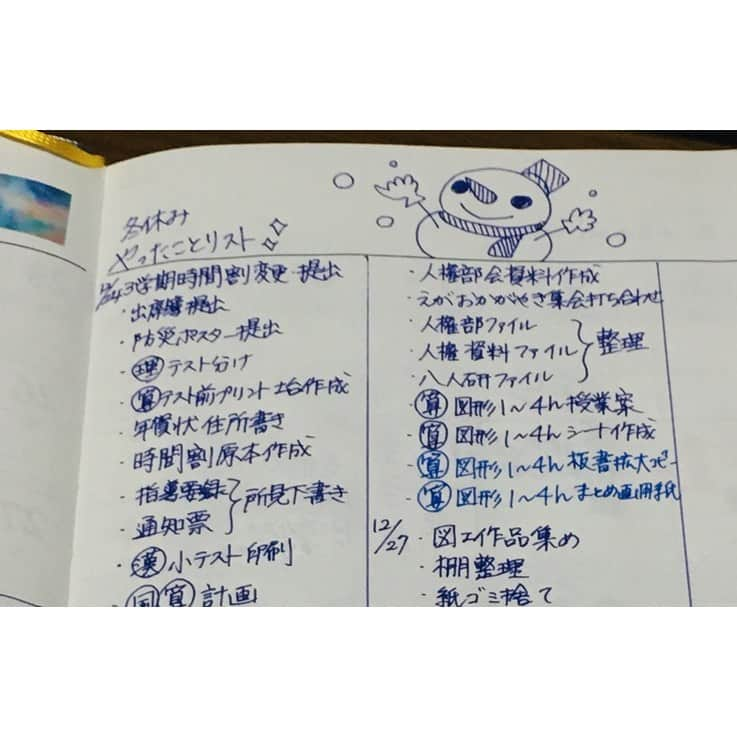 冬休み
やったことリスト
12/24 3学期時間割変更 提出
・出席簿提出
・防災ポスター提出
・理 テスト分け
・算 テスト前プリント2台作成
・年賀状住所書き
・時間割原本作成
・指導要録
・通知票
所見下書き
・漢 小テスト印刷
・国 算 計画
・人権部会資料作成
・えがおかがやき集会打ち合わせ
・人権部ファイル
・人権資料ファイル
・八人研ファイル
整理
・算 図形1〜4h授業案
・算 図形1〜4hシート作成
・算 図形1〜4h板書拡大コピー
・算 図形1〜4hまとめ画用紙
12/27 ・図工作品集め
・棚整理
・紙ゴミ捨て